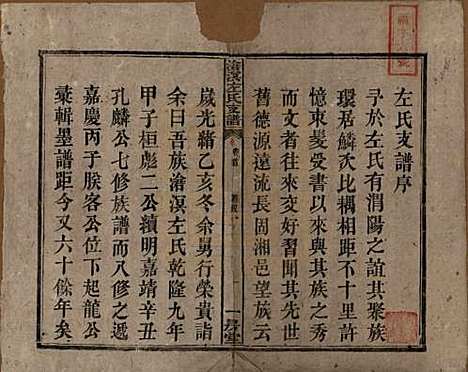 左氏支譜序
予於左氏有渭陽之誼其聚族
環居鱗次比耦相距不十里許
憶束髮受書以來與其族之秀
而文者往來交好習聞其先世
舊德源遠流長固湘邑望族云
左氏支譜
卷首
歲光緒乙亥冬余舅行榮貴詣
余曰吾族滄溟左氏乾隆九年
甲子桓彪二公續明嘉靖辛丑
孔麟公七修族譜而八修之遞
嘉慶丙子朕客公起龍公
彙輯墨譜距今又六十餘年矣